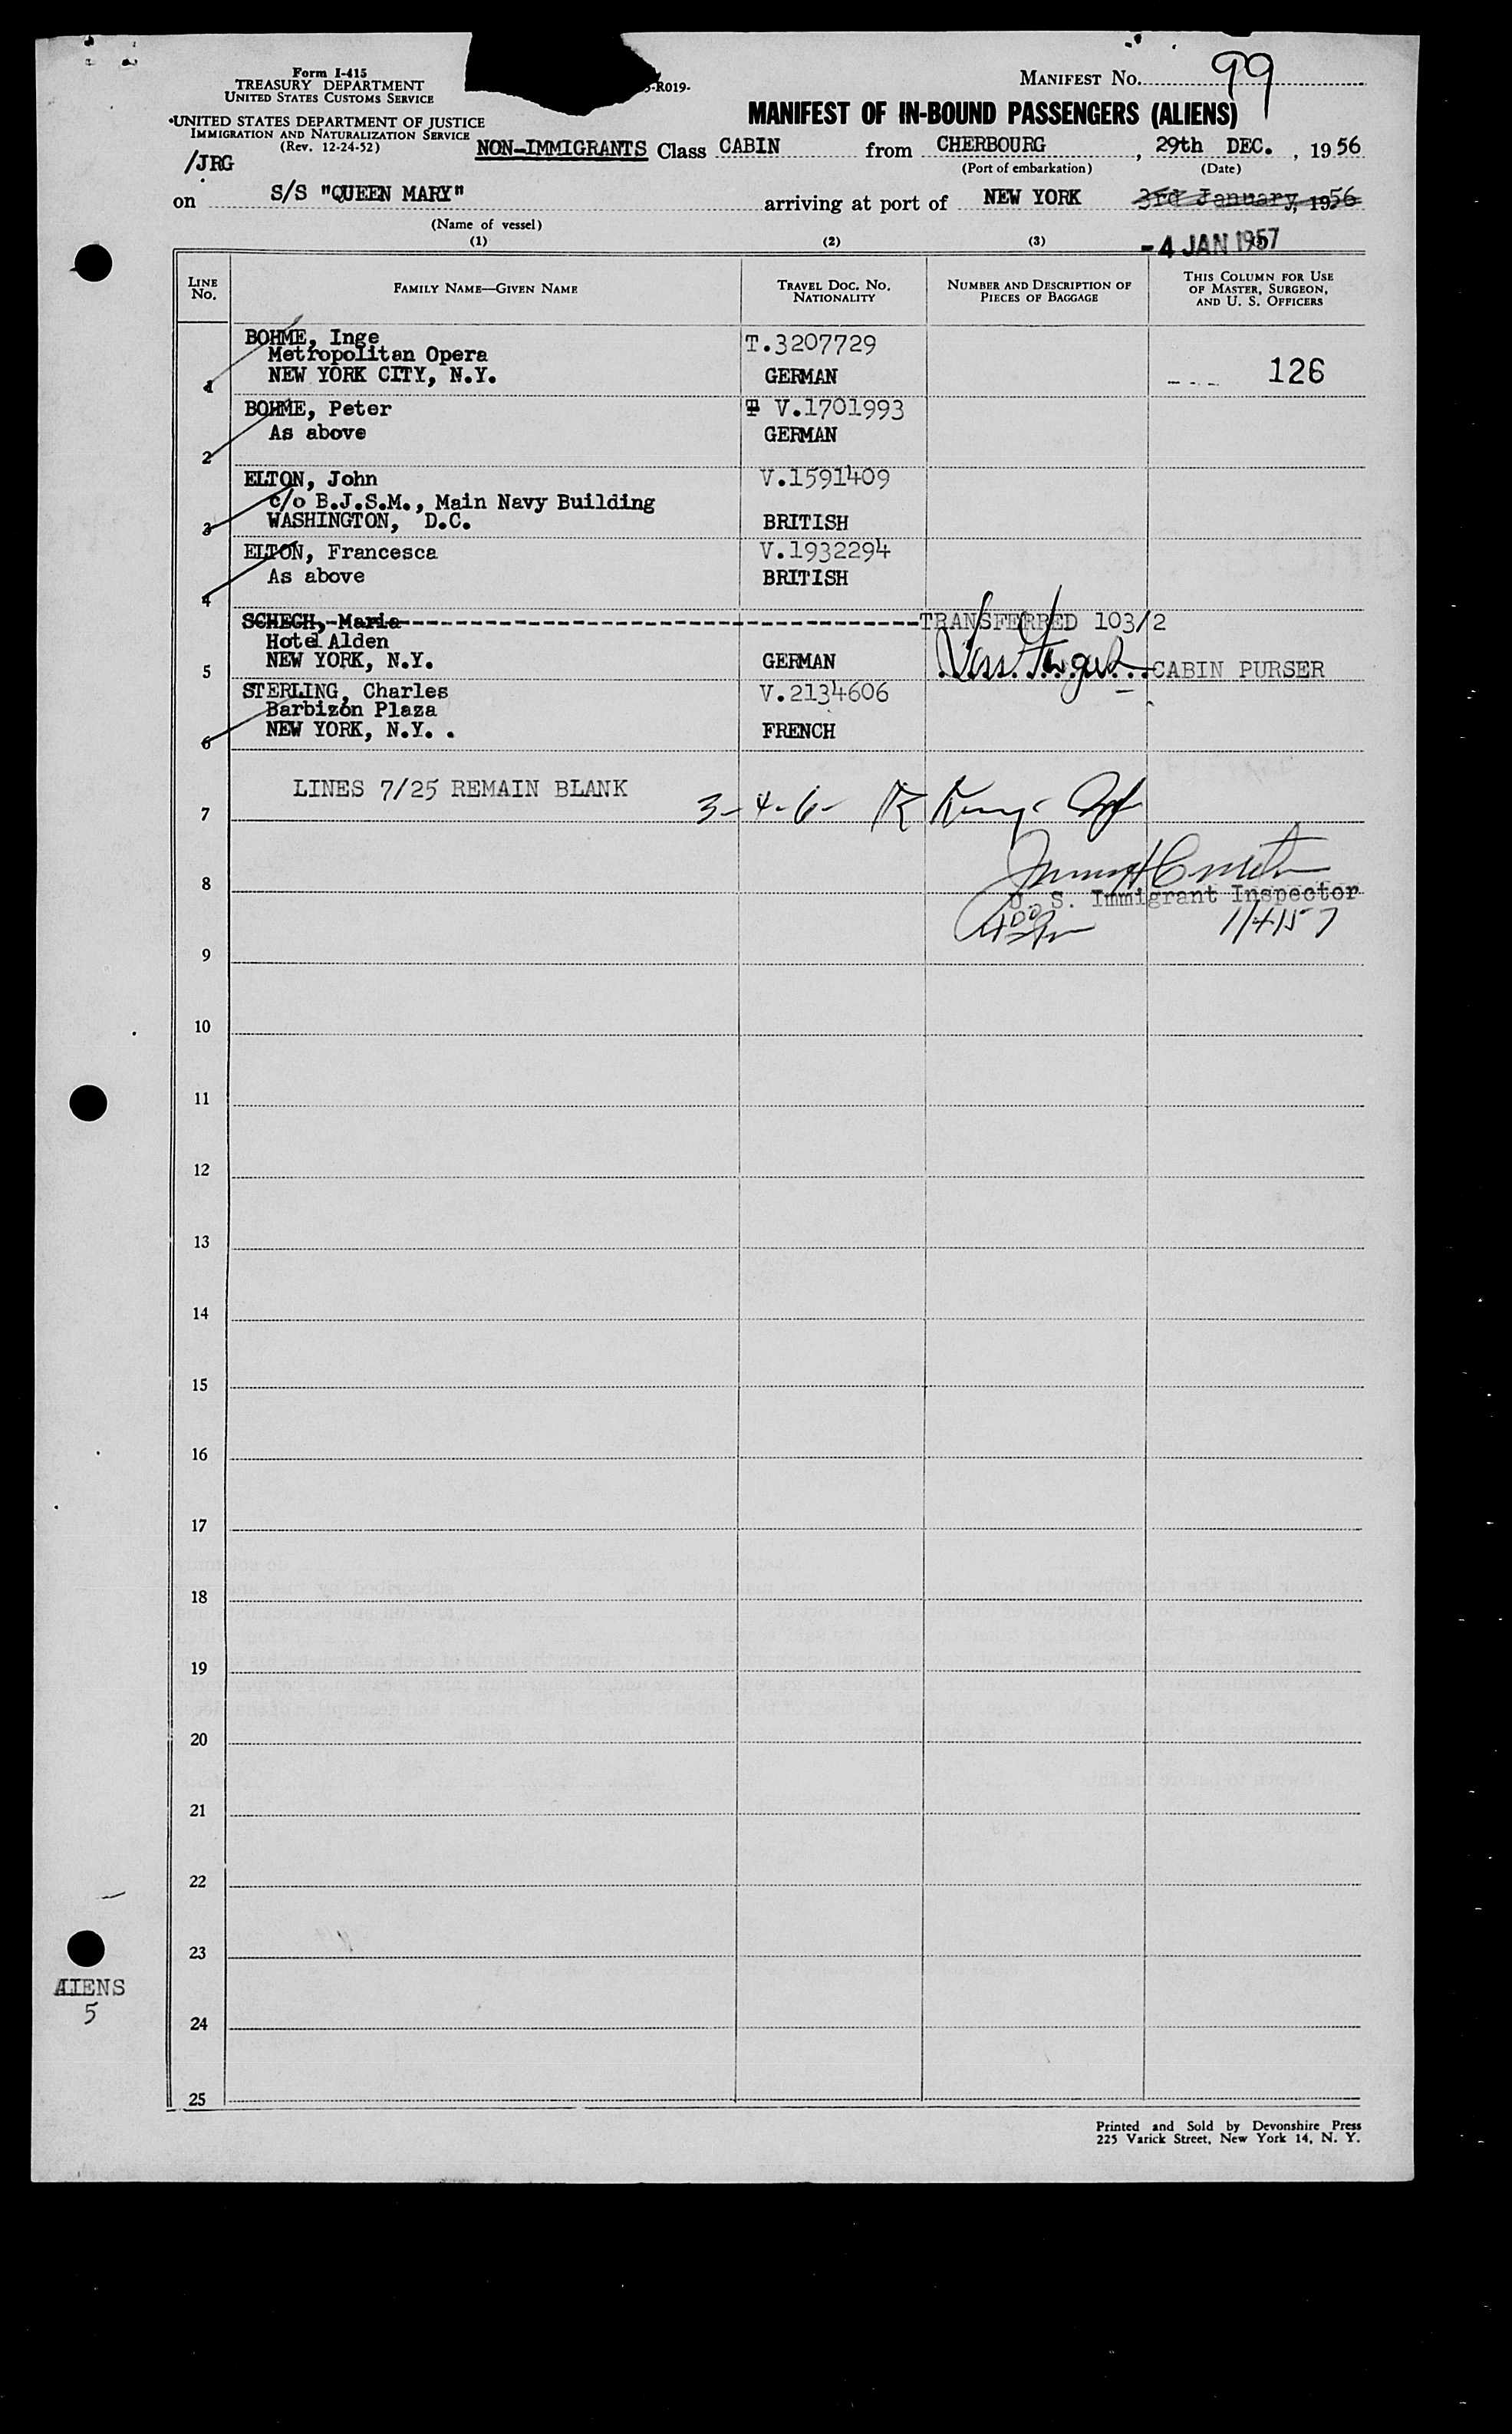 Form I-415
TREASURY DEPARTMENT
UNITED STATES CUSTOMS SERVICE
UNITED STATES DEPARTMENT OF JUSTICE
IMMIGRATION AND NATURALIZATION SERVICE
(Rev. 12-24-52)
/JRG
-R019-
MANIFEST NO. 99
MANIFEST OF IN-BOUND PASSENGERS (ALIENS)
NON-IMMIGRANTS Class CABIN from CHERBOURG, 29th DEC., 1956
(Port of embarkation) (Date)
on S/S "QUEEN MARY" arriving at port of NEW YORK 3rd January, 1956
(Name of vessel)
-4 JAN 1957
(1) (2) (3)
LINE NO. FAMILY NAME—GIVEN NAME TRAVEL DOC. NO. NATIONALITY NUMBER AND DESCRIPTION OF PIECES OF BAGGAGE THIS COLUMN FOR USE OF MASTER, SURGEON, AND U. S. OFFICERS
BOHME, Inge T.3207729
Metropolitan Opera
1 NEW YORK CITY, N.Y. GERMAN 126
BOHME, Peter T V.1701993
As above GERMAN
2
ELTON, John V.1591409
c/o B.J.S.M., Main Navy Building
3 WASHINGTON, D.C. BRITISH
ELTON, Francesca V.1932294
As above BRITISH
4
SCHECH, Maria TRANSFERRED 103/2
Hotel Alden
5 NEW YORK, N.Y. GERMAN CABIN PURSER
STERLING, Charles V.2134606
Barbizon Plaza
6 NEW YORK, N.Y. . FRENCH
LINES 7/25 REMAIN BLANK
7 3-4-6-
8
U. S. Immigrant Inspector
1/4/57
9
10
11
12
13
14
15
16
17
18
19
20
21
22
23
24
25
AIENS
5
Printed and Sold by Devonshire Press
225 Varick Street, New York 14, N. Y.